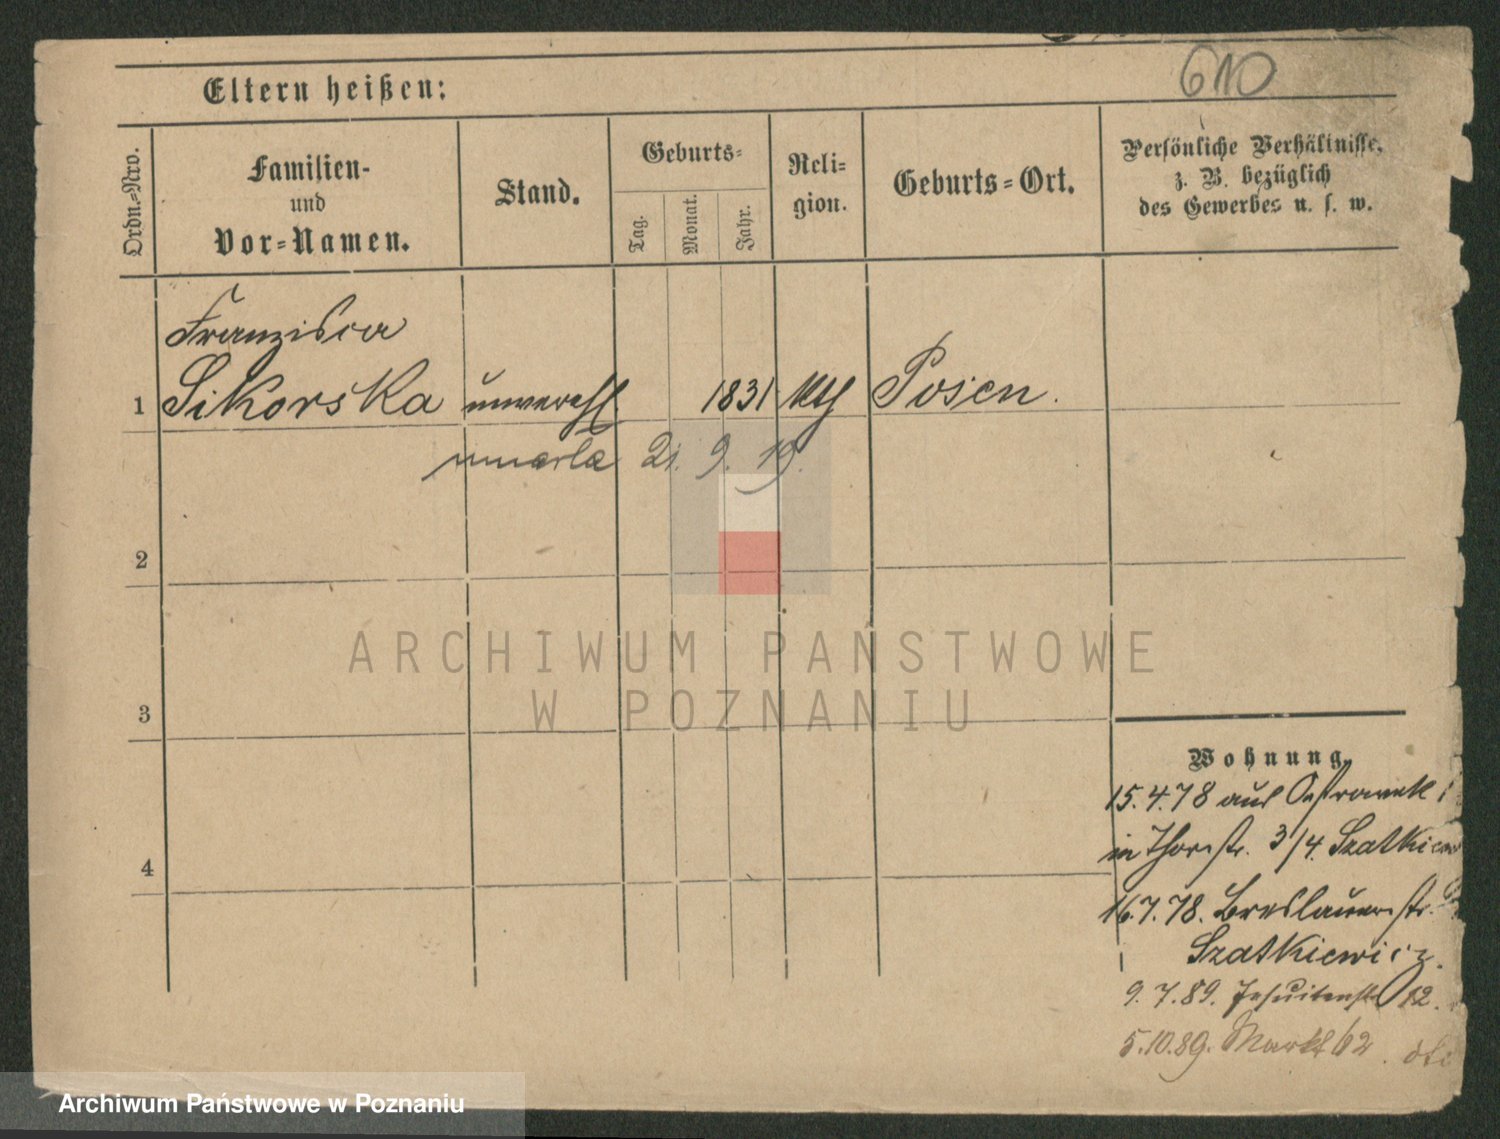 610
Eltern heißen:
Ordn.-Nro.
Familien-
und
Vor-Namen.
Stand.
Geburts-
Tag.
Monat.
Jahr.
Reli-
gion.
Geburts-Ort.
Persönliche Verhältnisse,
z. B. bezüglich
des Gewerbes u. s. w.
Franzisca
1 Sikorska unverehl 1831 kth Posen.
umarła 21. 9. 19.
2
3
4
Wohnung.
15.4.78 aus Ostrowek
in Thorstr. 3/4. Szatkiew
16.7.78. Breslauerstr.
Szatkiewicz.
9.7.89. Jesuitenstr 12.
5.10.89. Markt 62.
ARCHIWUM PAŃSTWOWE
W POZNANIU
Archiwum Państwowe w Poznaniu